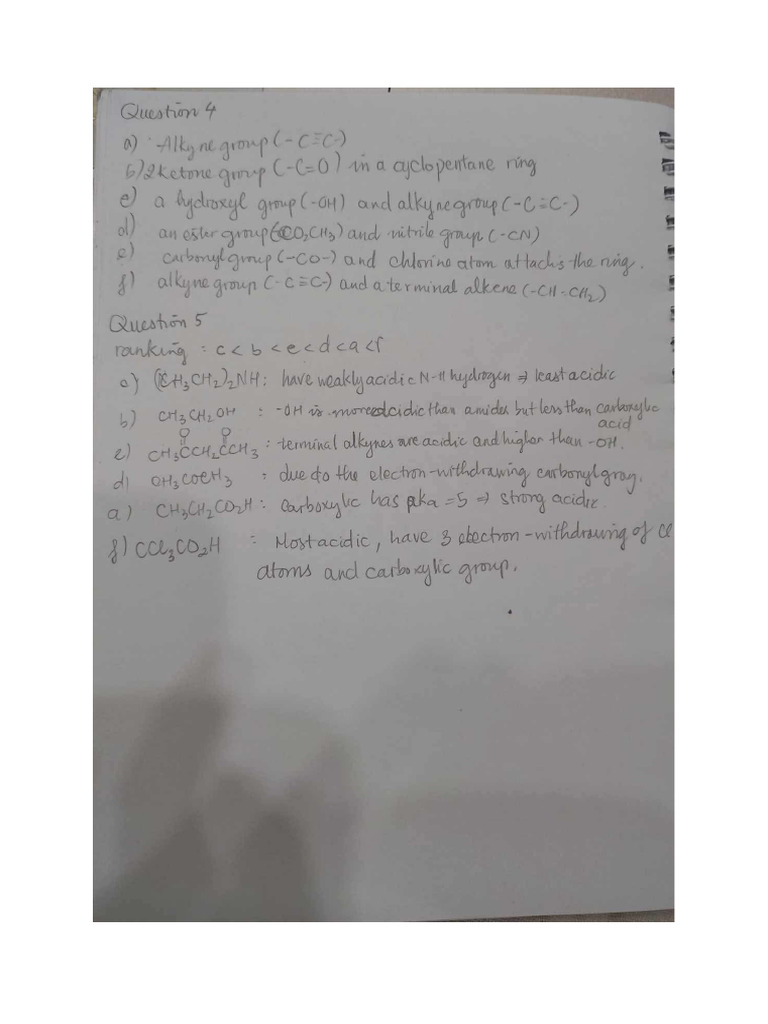 Question 4
a) Alkyne group (-C≡C-)
b) 2 ketone group (-C=O) in a cyclopentane ring
c) a hydroxyl group (-OH) and alkyne group (-C≡C-)
d) an ester group (CO₂CH₃) and nitrile group (-CN)
e) carbonyl group (-CO-) and chlorine atom attachs the ring.
f) alkyne group (-C≡C-) and a terminal alkene (-CH-CH₂)
Question 5
ranking : c < b < e < d < a < f
c) (CH₃CH₂)₂NH : have weakly acidic N-H hydrogen ⇒ least acidic
b) CH₃CH₂OH : -OH is more acidic than amides but less than carboxylic
acid
O O
e) CH₃CCH₂CCH₃ : terminal alkynes are acidic and higher than -OH.
d) CH₃COCH₃ : due to the electron-withdrawing carbonyl
a) CH₃CH₂CO₂H : Carboxylic has pka = 5 ⇒ strong acidic
f) CCl₃CO₂H : Most acidic, have 3 electron-withdrawing of Cl
atoms and carboxylic group.